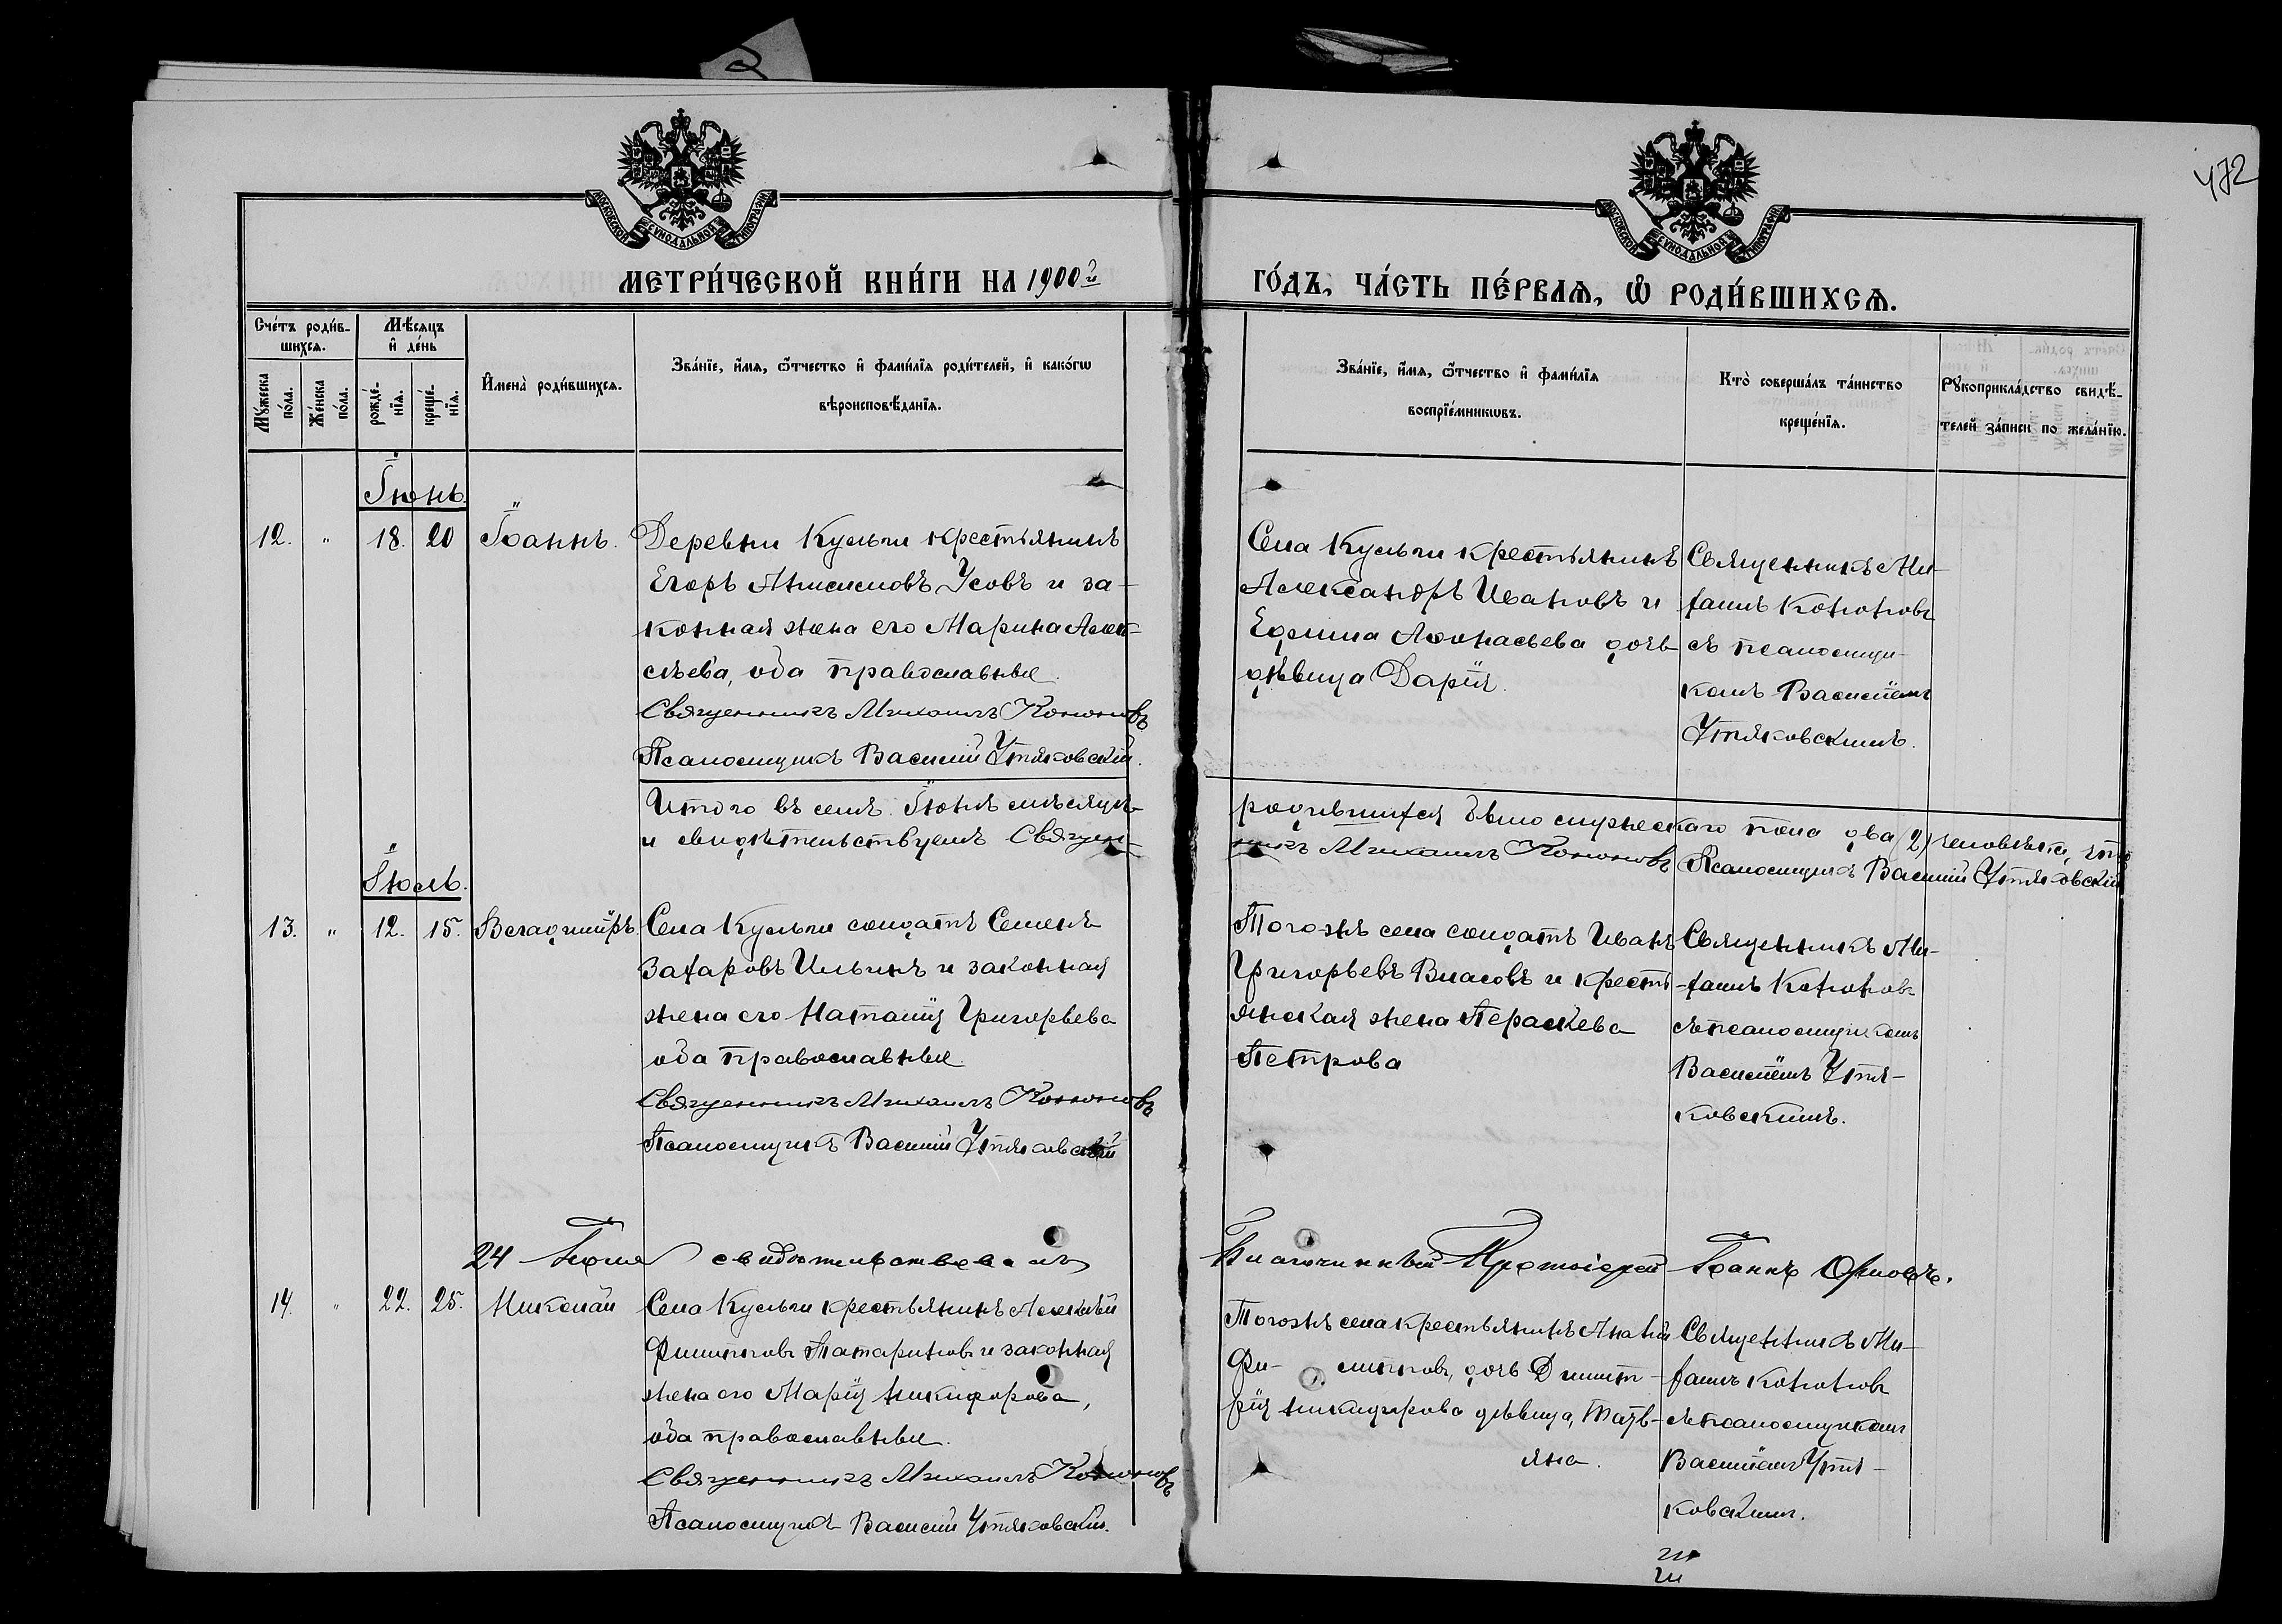 472
МОСКОВСКОЙ СУНОДАЛЬНОЙ ТИПОГРАФИИ
МОСКОВСКОЙ СУНОДАЛЬНОЙ ТИПОГРАФИИ
МЕТРИ́ЧЕСКОЙ КНИ́ГИ НА 1900й
ГО́ДЪ, ЧА́СТЬ ПЕ́РВАѦ, Ѽ РОДИ́ВШИХСѦ.
Сче́тъ роди́в-
шихсѧ.
Мѣ́сѧцъ
и҆ де́нь
Мꙋ́жеска
по́ла.
Же́нска
по́ла.
рожде́-
нїѧ.
креще́-
нїѧ.
И҆мена̀ роди́вшихсѧ.
Зва́нїе, и҆́мѧ, ѻ҆́тчество и҆ фами́лїѧ роди́телей, и҆ како́гѡ
вѣроисповѣ́данїѧ.
Зва́нїе, и҆́мѧ, ѻ҆́тчество и҆ фами́лїѧ
воспрїе́мникѡвъ.
Кто̀ соверша́лъ та́инство
креще́нїѧ.
Рꙋкоприкла́дство свидѣ́-
телей за́писи по жела́нїю.
Іюнь.
12. " 18. 20 Іоаннъ.
Деревни Кульчи крестьянинъ
Егоръ Анисимовъ Усовъ и за-
конная жена его Марина Алек-
сѣева, оба православные.
Священникъ Михаилъ Кононовъ
Псаломщикъ Василій Утяковскій.
Села Кульчи крестьянинъ
Александръ Ивановъ и
Ефима Аѳонасьева дочь
дѣвица Дарія.
Священникъ Ми-
хаилъ Кононовъ
съ псаломщи-
комъ Василіемъ
Утяковскимъ.
Итого въ семъ Іюнѣ мѣсяцѣ
родившихся было мужескаго пола два (2) человѣка, что
и свидѣтельствуемъ Священ-
никъ Михаилъ Кононовъ Псаломщикъ Василій Утяковскій
Іюль.
13. " 12. 15. Владиміръ.
Села Кульчи солдатъ Семенъ
Захаровъ Ильинъ и законная
жена его Наталія Григорьева
оба православные.
Священникъ Михаилъ Кононовъ
Псаломщикъ Василій Утяковскій
Тогожъ села солдатъ Иванъ
Григорьевъ Власовъ и кресть-
янская жена Параскева
Петрова
Священникъ Ми-
хаилъ Кононовъ
съ псаломщикомъ
Василіемъ Утя-
ковскимъ.
24 Іюля свидѣтельствовалъ
Благочинный Протоіерей Іоаннъ Орловъ.
14. " 22. 25. Николай
Села Кульчи крестьянинъ Алексѣй
Филипповъ Татариновъ и законная
жена его Марія Никифорова,
оба православные.
Священникъ Михаилъ Кононовъ
Псаломщикъ Василій Утяковскій.
Тогожъ села крестьянинъ
Фи- липповъ, дочь Димит-
рія Никифорова дѣвица, Тать-
яна.
Священникъ Ми-
хаилъ Кононовъ
съ псаломщикомъ
Василіемъ Утя-
ковскимъ.